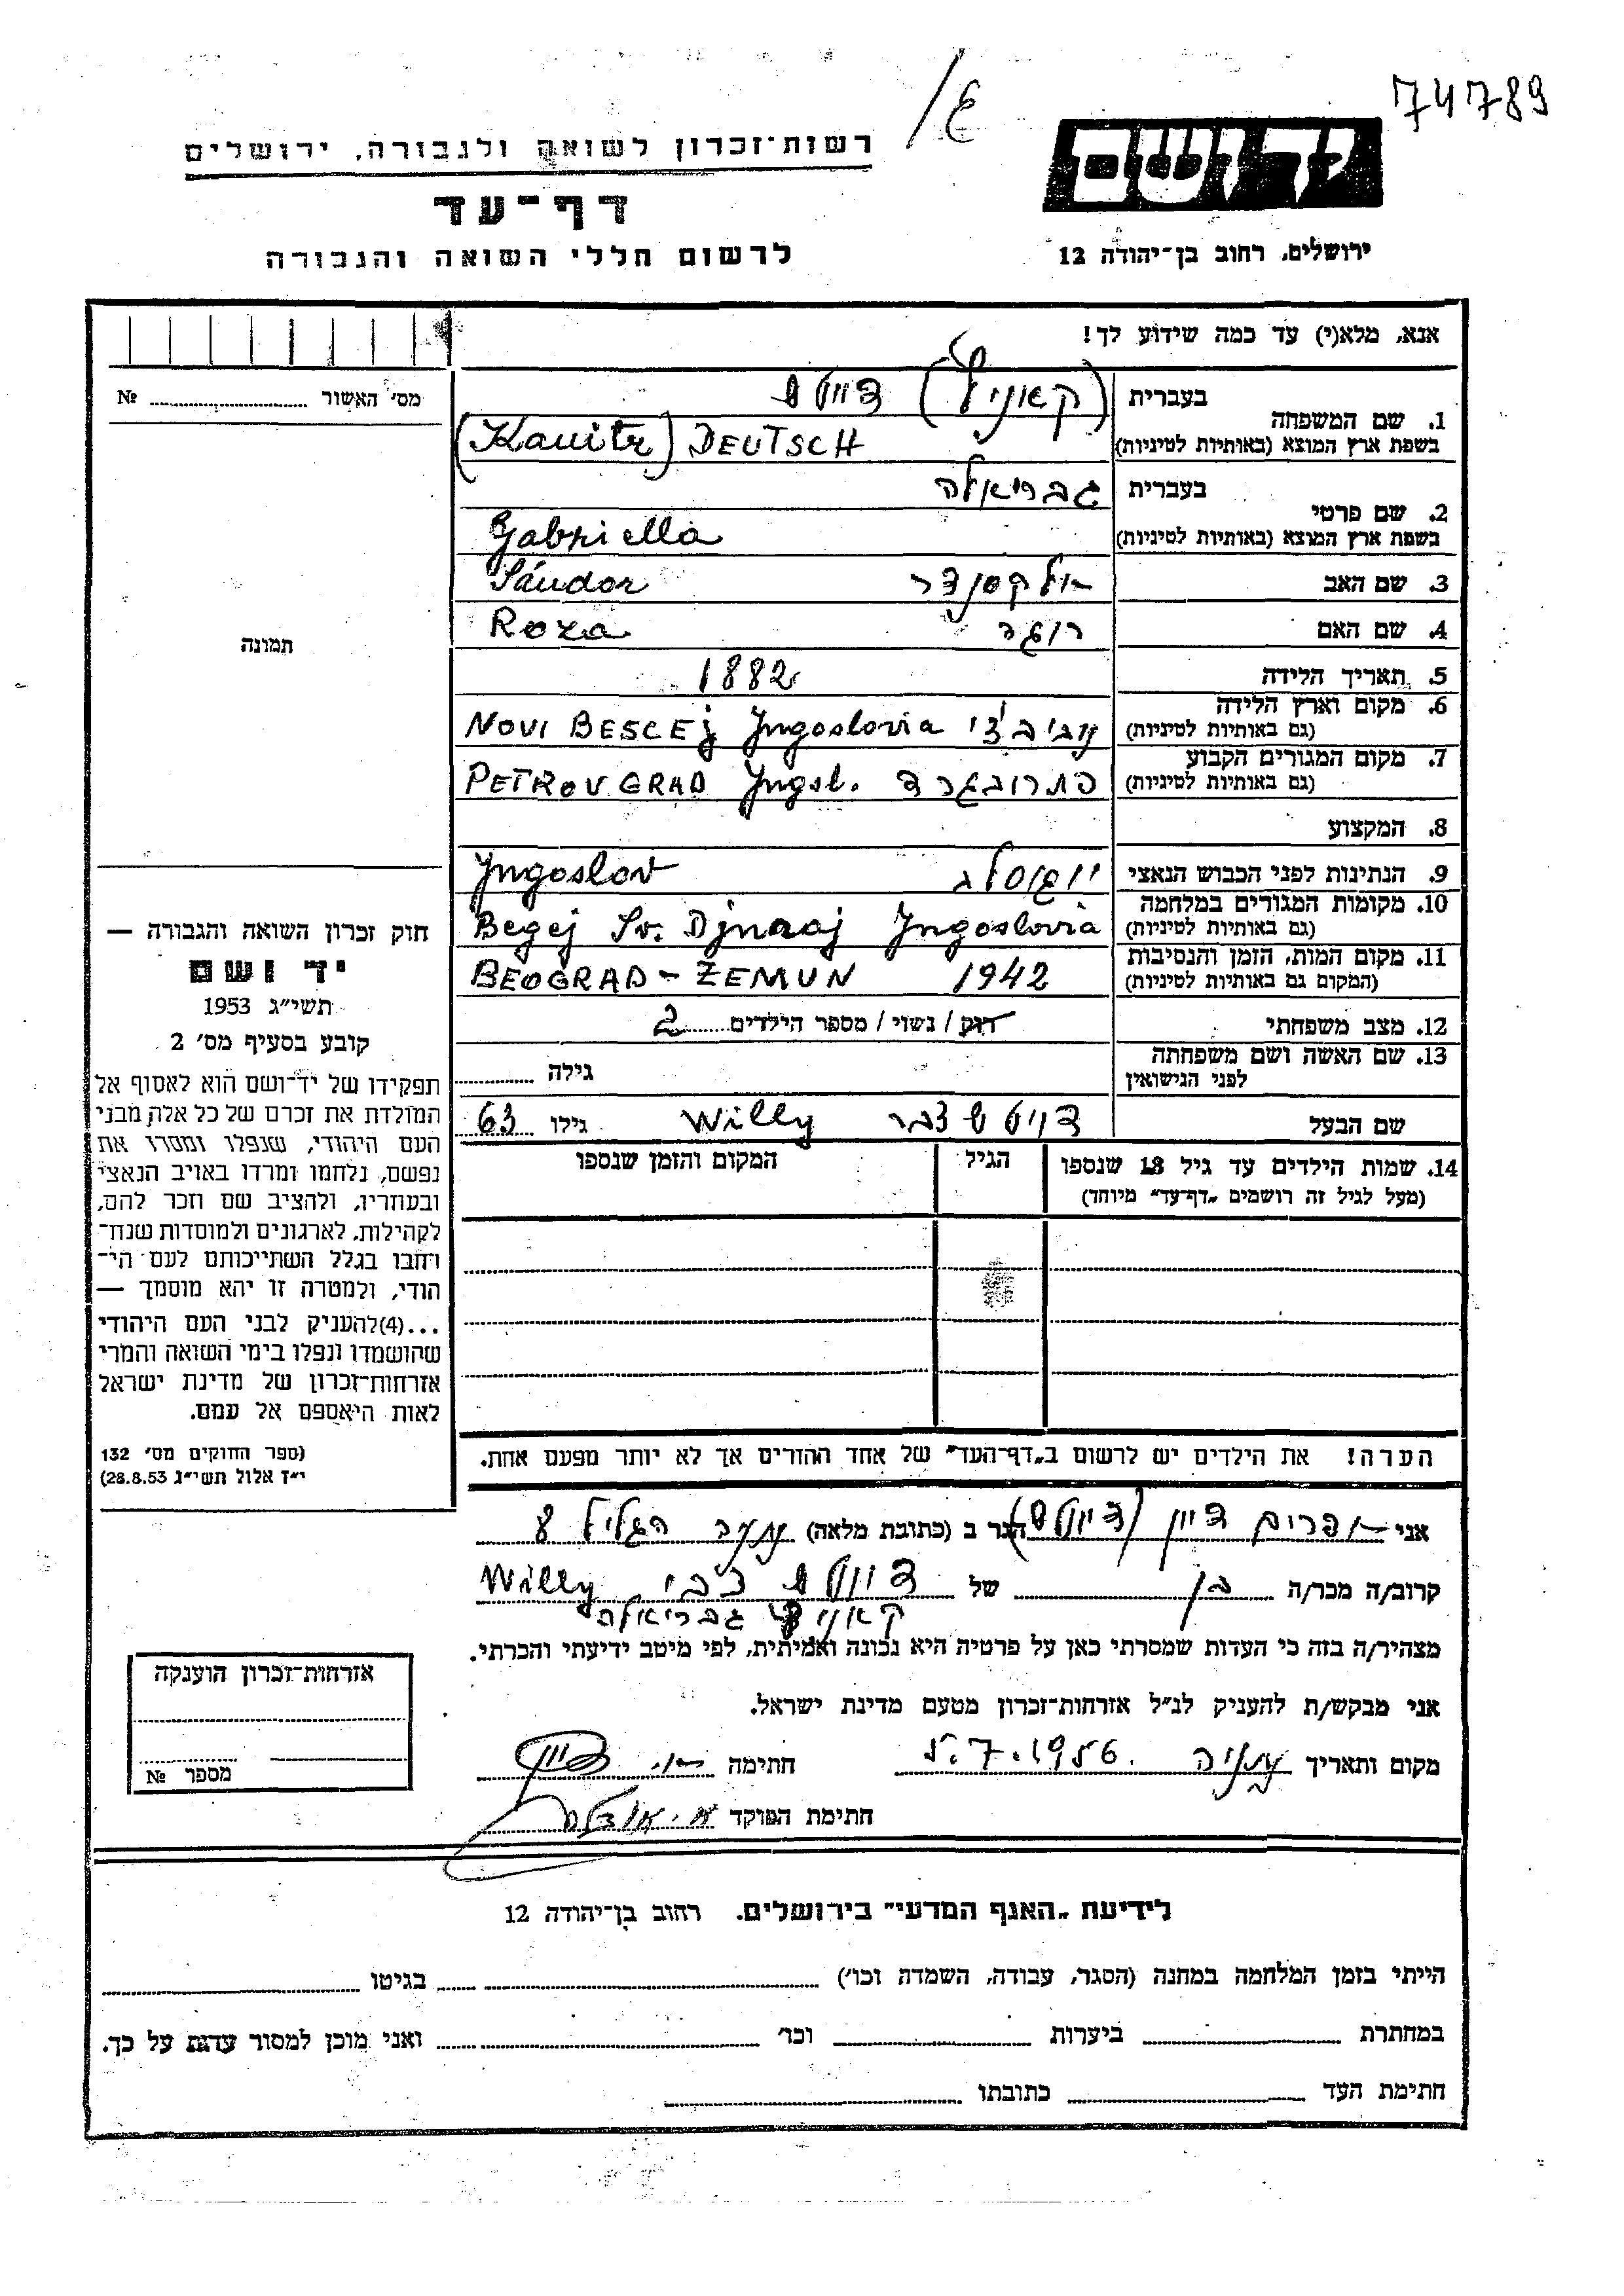 74789
רשות־זכרון לשואה ולגבורה, ירושלים
דף־עד
לרשום חללי השואה והגבורה
יד ושם
ירושלים, רחוב בן־יהודה 12
אנא, מלא(י) עד כמה שידוע לך!
מס׳ האשור № 
1. שם המשפחה
בעברית (קאניץ) דויטש
בשפת ארץ המוצא (באותיות לטיניות) (Kanitz) DEUTSCH
2. שם פרטי
בעברית גבריאלה
בשפת ארץ המוצא (באותיות לטיניות) Gabriella
3. שם האב אלקסנדר Sándor
4. שם האם רוזה Roza
5. תאריך הלידה 1882
6. מקום וארץ הלידה
(גם באותיות לטיניות) NOVI BESCEj Jugoslovia
7. מקום המגורים הקבוע
(גם באותיות לטיניות) פתרובגרד PETROVGRAD Jugosl.
8. המקצוע
9. הנתינות לפני הכבוש הנאצי Jugoslov
10. מקומות המגורים במלחמה
(גם באותיות לטיניות) Begej Sv. Djuraj Jugoslovia
11. מקום המות, הזמן והנסיבות
(המקום גם באותיות לטיניות) BEOGRAD - ZEMUN 1942
12. מצב משפחתי רוק / נשוי / מספר הילדים 2
13. שם האשה ושם משפחתה
לפני הנישואין גילה
שם הבעל דויטש צבי Willy גילו 63
14. שמות הילדים עד גיל 18 שנספו
(מעל לגיל זה רושמים „דף־עד״ מיוחד)
הגיל
המקום והזמן שנספו
הערה! את הילדים יש לרשום ב„דף־העד״ של אחד ההורים אך לא יותר מפעם אחת.
תמונה
חוק זכרון השואה והגבורה —
יד ושם
תשי״ג 1953
קובע בסעיף מס׳ 2
תפקידו של יד־ושם הוא לאסוף אל
המולדת את זכרם של כל אלה מבני
העם היהודי, שנפלו ומסרו את
נפשם, נלחמו ומרדו באויב הנאצי
ובעוזריו, ולהציב שם וזכר להם,
לקהילות, לארגונים ולמוסדות שנח־
רחבו בגלל השתייכותם לעם הי־
הודי, ולמטרה זו יהא מוסמך —
...(4)להעניק לבני העם היהודי
שהושמדו ונפלו בימי השואה והמרי
אזרחות־זכרון של מדינת ישראל
לאות היאספם אל עמם.
(ספר החוקים מס׳ 132
י״ז אלול תשי״ג 28.8.53)
אני אפרים דיין (דויטש) הגר ב (כתובת מלאה) הגליל
קרוב/ה מכר/ה בן של דויטש צבי Willy
קאניץ גבריאלה
מצהיר/ה בזה כי העדות שמסרתי כאן על פרטיה היא נכונה ואמיתית, לפי מיטב ידיעתי והכרתי.
אני מבקש/ת להעניק לנ״ל אזרחות־זכרון מטעם מדינת ישראל.
מקום ותאריך נתניה 5.7.1956. חתימה א. דיין
חתימת הפוקד
אזרחות־זכרון הוענקה
מספר №
לידיעת „האגף המדעי״ בירושלים. רחוב בן־יהודה 12
הייתי בזמן המלחמה במחנה (הסגר, עבודה, השמדה וכו׳) בגיטו
במחתרת ביערות וכו׳ ואני מוכן למסור עדות על כך.
חתימת העד כתובתו